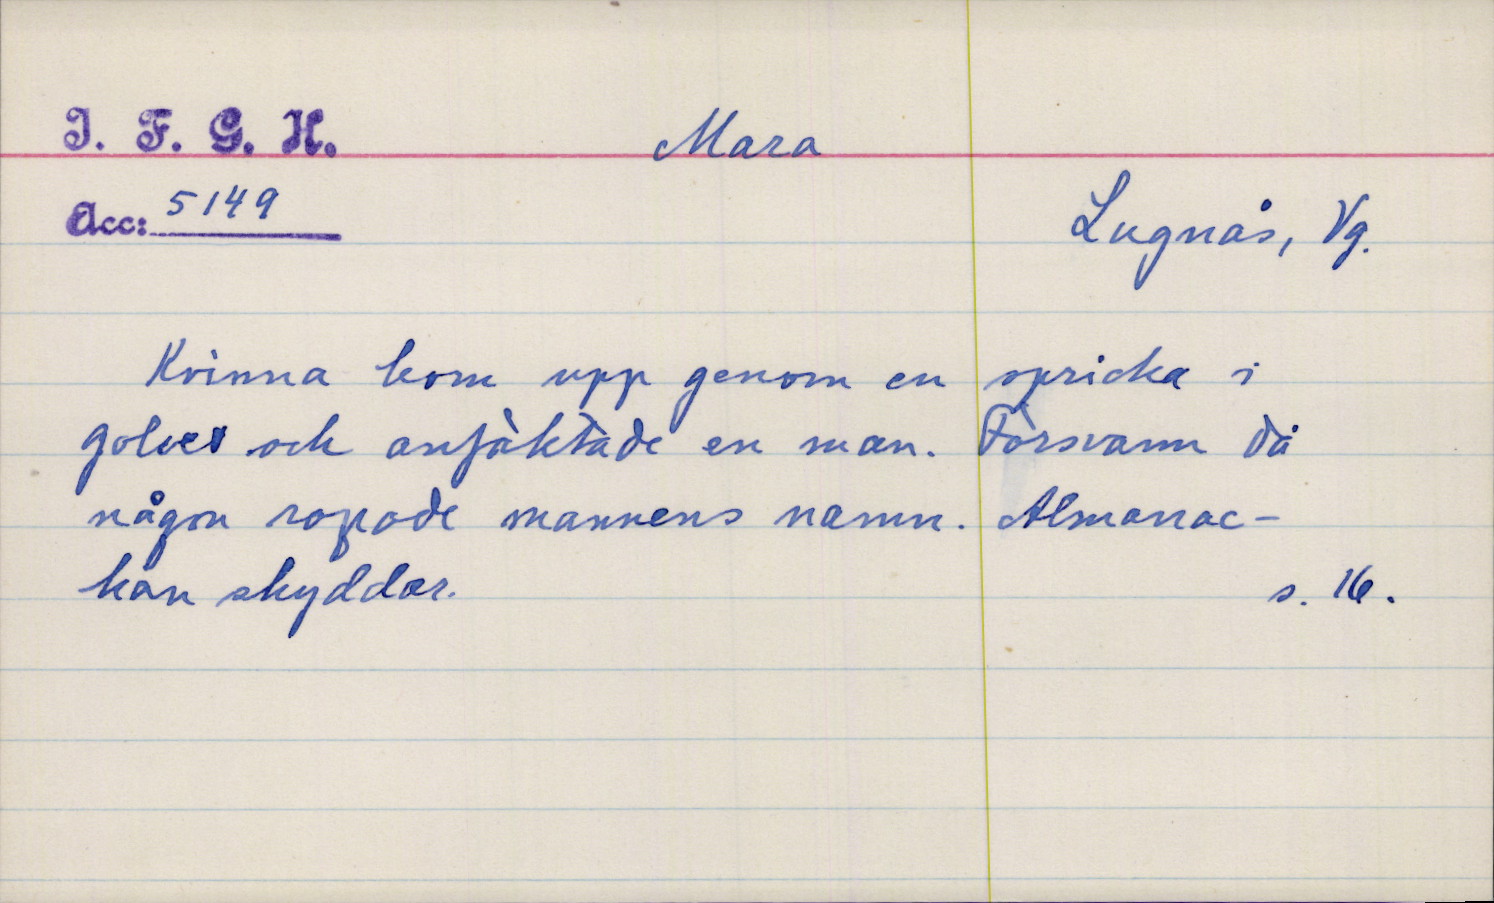 I. F. G. H.
Mara
Acc: 5149
Lugnås, Vg.
Kvinna kom upp genom en spricka i
golvet och anfäktade en man. Försvann då
någon ropade mannens namn. Almanac-
kan skyddar.
s. 16.